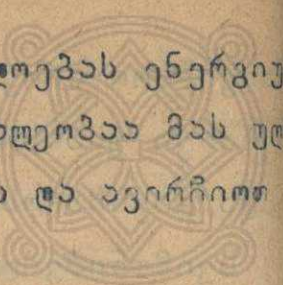 ოებას ენერგიუ
ღეობაა მას უღ
ა და ავირჩიოთ